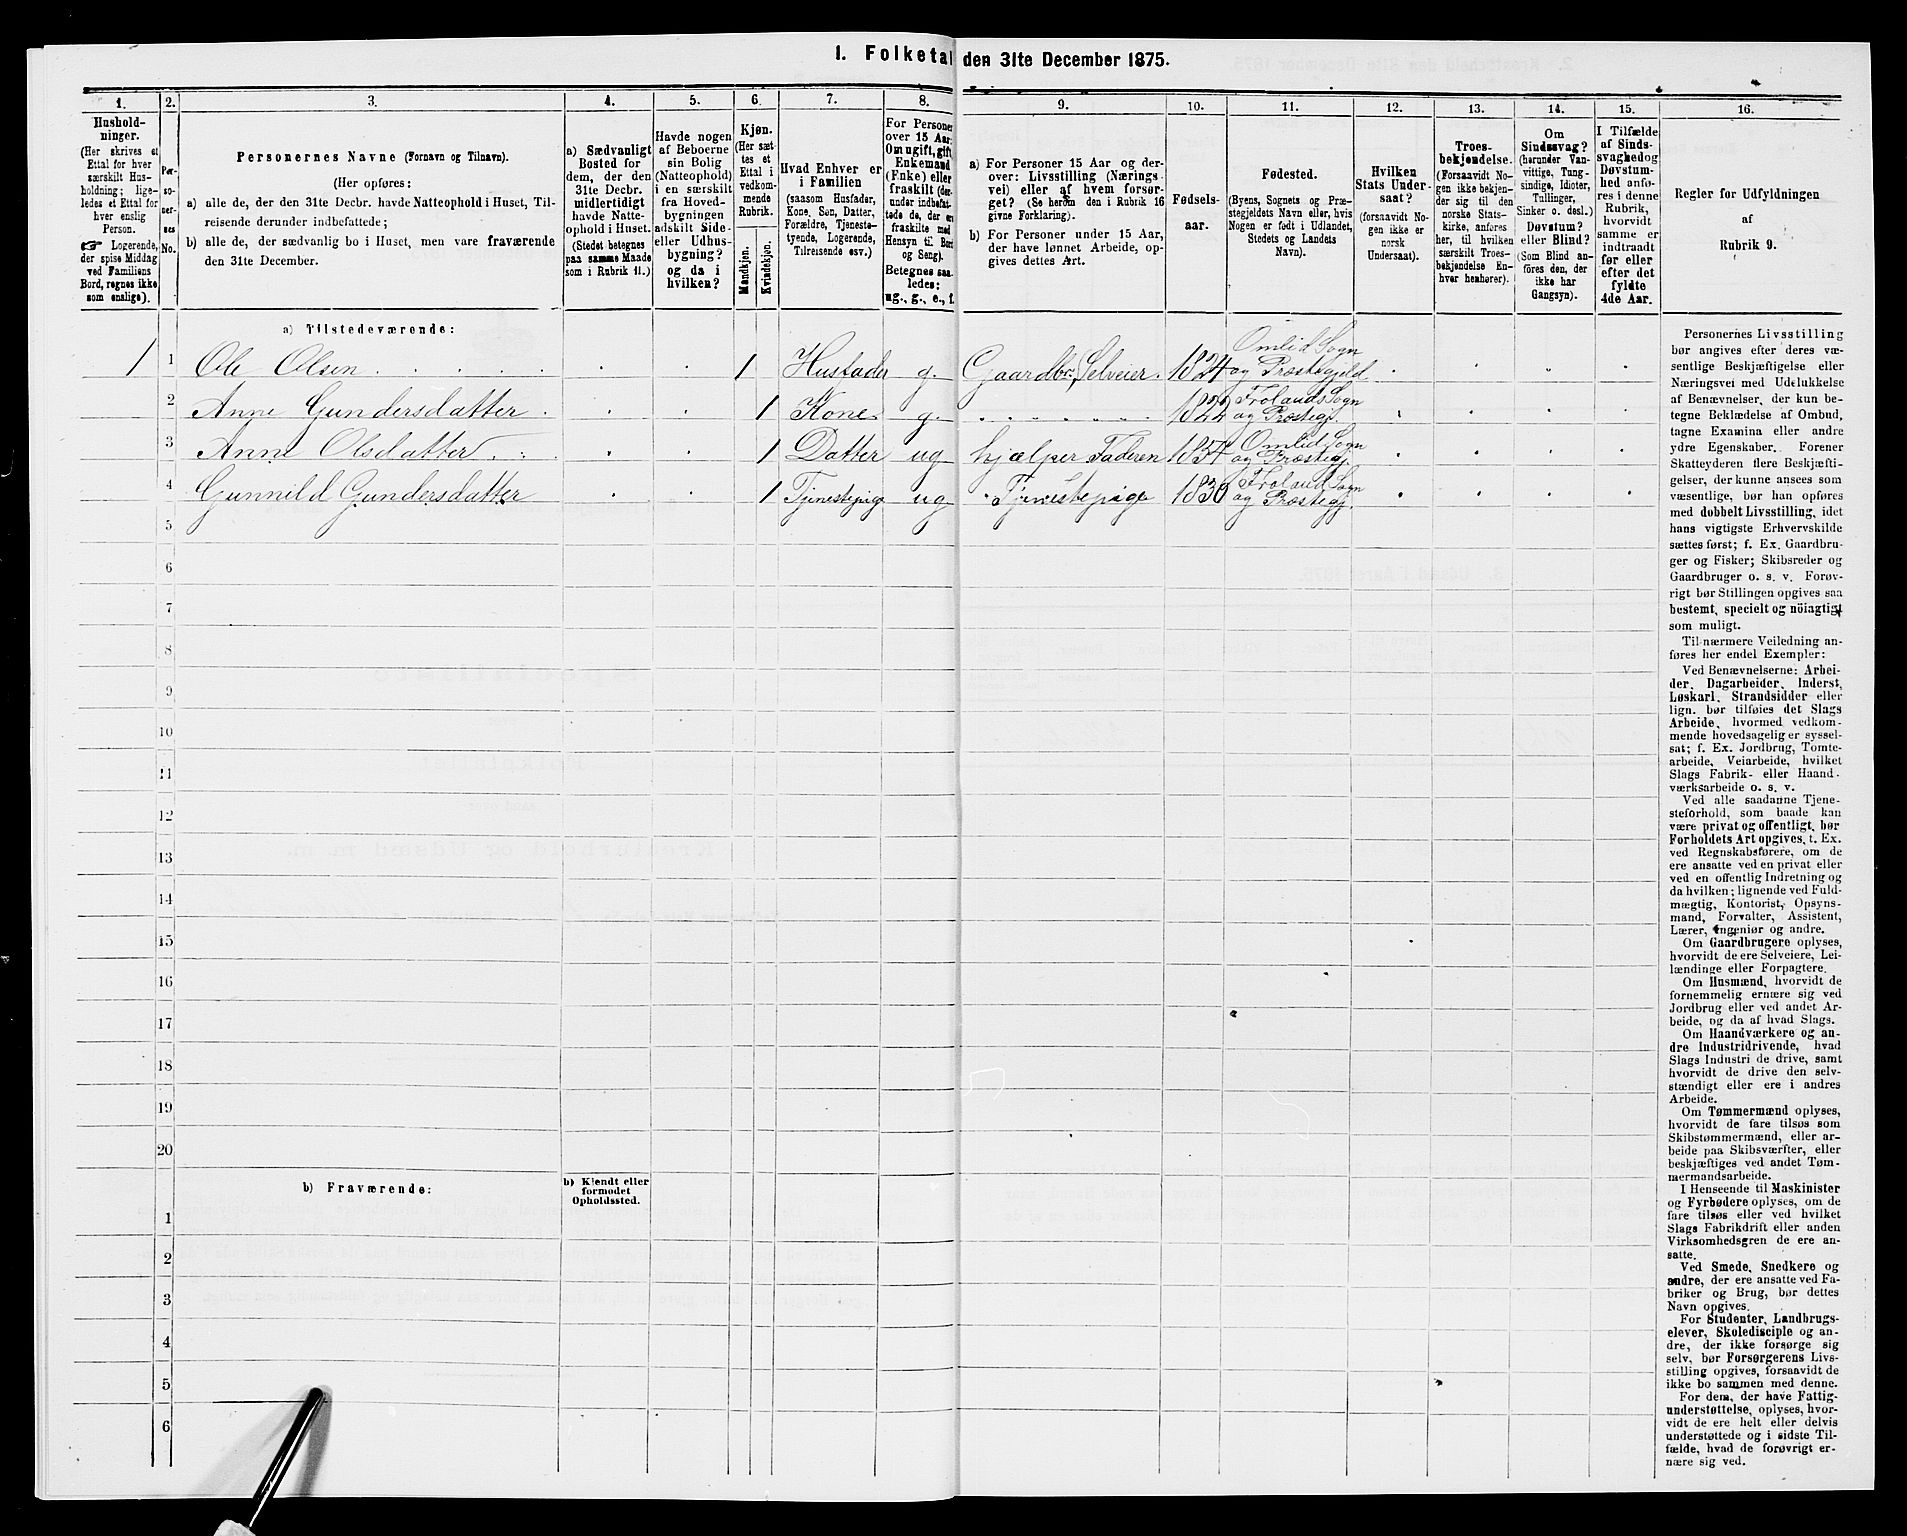 1. Folketal den 31te December 1875.
1.
Hushold-
ninger.
(Her skrives et
Ettal for hver
særskilt Hus-
holdning; lige-
ledes et Ettal for
hver enslig
Person.
☞ Logerende,
der spise Middag
ved Familiens
Bord, regnes ikke
som enslige).
2.
Per-
so-
ner-
nes
No.
3.
Personernes Navne (Fornavn og Tilnavn).
(Her opføres:
a) alle de, der den 31te Decbr. havde Natteophold i Huset, Til-
reisende derunder indbefattede;
b) alle de, der sædvanlig bo i Huset, men vare fraværende
den 31te December.
4.
a) Sædvanligt
Bosted for
dem, der den
31te Decbr.
midlertidigt
havde Natte-
ophold i Huset.
(Stedet betegnes
paa samme Maade
som i Rubrik 11.)
5.
Havde nogen
af Beboerne
sin Bolig
(Natteophold)
i en særskilt
fra Hoved-
bygningen
adskilt Side-
eller Udhus-
bygning?
og da i
hvilken?
6.
Kjøn.
(Her sæt-
tes et
Ettal i
vedkom-
mende
Rubrik.
Mandkjøn.
Kvindekjøn.
7.
Hvad Enhver er
i Familien
(saasom Husfader,
Kone, Søn, Datter,
Forældre, Tjeneste-
tyende, Logerende,
Tilreisende osv.)
8.
For Personer
over 15 Aar:
Om ugift, gift,
Enkemand
(Enke) eller
fraskilt (der-
under indbefat-
tede de, der ere
fraskilte med
Hensyn til Bord
og Seng).
Betegnes saa-
ledes:
ug., g., e., f.
9.
a) For Personer 15 Aar og der-
over: Livsstilling (Nærings-
vei) eller af hvem forsør-
get? (Se herom den i Rubrik 16
givne Forklaring).
b) For Personer under 15 Aar,
der have lønnet Arbeide, op-
gives dettes Art.
10.
Fødsels-
aar.
11.
Fødested.
(Byens, Sognets og Præ-
stegjeldets Navn eller, hvis
Nogen er født i Udlandet,
Stedets og Landets
Navn).
12.
Hvilken
Stats Under-
saat?
(forsaavidt No-
gen ikke er
norsk
Undersaat).
13.
Troes-
bekjendelse.
(Forsaavidt No-
gen ikke bekjen-
der sig til den
norske Stats-
kirke, anføres
her, til hvilken
særskilt Troes-
bekjendelse En-
hver henhører).
14.
Om
Sindssvag?
(herunder Van-
vittige, Tung-
sindige, Idioter,
Tullinger,
Sinker o. desl.)
Døvstum?
eller Blind?
(Som Blind an-
føres den, der
ikke har
Gangsyn).
15.
I Tilfælde
af Sinds-
svaghed og
Døvstum-
hed anfø-
res i denne
Rubrik,
hvorvidt
samme er
indtraadt
før eller
efter det
fyldte
4de Aar.
16.
Regler for Udfyldningen
af
Rubrik 9.
a) Tilstedeværende:
1 1 Ole Olsen 1 Husfader g. Gaardbr, Selveier. 1824 Omlid Sogn og Præstegjeld
2 Anne Gundersdatter 1 Kone g. 1822 Frolands Sogn og Præstegj.
3 Anne Olsdatter 1 Datter ug hjælper Faderen 1857 Omlid Sogn og Præstegj.
4 Gunnild Gundersdatter 1 Tjenestepige ug Tjenestepige 1830 Froland Sogn og Præstegj.
5
6
7
8
9
10
11
12
13
14
15
16
17
18
19
20
b) Fraværende:
b) Kjendt eller
formodet
Opholdssted.
1
2
3
4
5
6
Personernes Livsstilling
bør angives efter deres væ-
sentlige Beskjæftigelse eller
Næringsvei med Udelukkelse
af Benævnelser, der kun be-
tegne Beklædelse af Ombud,
tagne Examina eller andre
ydre Egenskaber. Forener
Skatteyderen flere Beskjæfti-
gelser, der kunne ansees som
væsentlige, bør han opføres
med dobbelt Livsstilling, idet
hans vigtigste Erhvervskilde
sættes først; f. Ex. Gaardbru-
ger og Fisker; Skibsreder og
Gaardbruger o. s. v. Forøv-
rigt bør Stillingen opgives saa
bestemt, specielt og nöiagtigt
som muligt.
Til nærmere Veiledning an-
føres her endel Exempler:
Ved Benævnelserne: Arbei-
der, Dagarbeider, Inderst,
Løskarl, Strandsidder eller
lign. bør tilføies det Slags
Arbeide, hvormed vedkom-
mende hovedsagelig er syssel-
sat; f. Ex. Jordbrug, Tomte-
arbeide, Veiarbeide, hvilket
Slags Fabrik- eller Haand-
værksarbeide o. s. v.
Ved alle saadanne Tjene-
steforhold, som baade kan
være privat og offentligt, bør
Forholdets Art opgives, t. Ex.
ved Regnskabsførere, om de
ere ansatte ved en privat eller
ved en offentlig Indretning og
da hvilken; lignende ved Fuld-
mægtig, Kontorist, Opsyns-
mand, Forvalter, Assistent,
Lærer, Ingeniør og andre.
Om Gaardbrugere oplyses,
hvorvidt de ere Selveiere, Lei-
lændinge eller Forpagtere.
Om Husmænd, hvorvidt de
fornemmelig ernære sig ved
Jordbrug eller ved andet Ar-
beide, og da af hvad Slags.
Om Haandværkere og an-
dre Industridrivende, hvad
Slags Industri de drive, samt
hvorvidt de drive den selv-
stændigt eller ere i andres
Arbeide.
Om Tømmermænd oplyses,
hvorvidt de fare tilsøs som
Skibstømmermænd, eller ar-
beide paa Skibsværfter, eller
beskjæftiges ved andet Tøm-
mermandsarbeide.
I Henseende til Maskinister
og Fyrbødere oplyses, om de
fare tilsøs eller ved hvilket
Slags Fabrikdrift eller anden
Virksomhedsgren de ere an-
satte.
Ved Smede, Snedkere og
andre, der ere ansatte ved Fa-
briker og Brug, bør dettes
Navn opgives.
For Studenter, Landbrugs-
elever, Skoledisciple og an-
dre, der ikke forsørge sig
selv, bør Forsørgerens Livs-
stilling opgives, forsaavidt de
ikke bo sammen med denne.
For dem, der have Fattig-
understøttelse, oplyses, hvor-
vidt de ere helt eller delvis
understøttede og i sidste Til-
fælde, hvad de forøvrigt er-
nære sig ved.